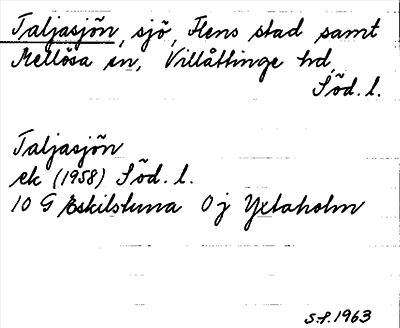 Taljasjön, sjö, Flens stad samt
Mellösa sn, Villåttinge hd,
Söd. l.
Taljasjön
ek (1958) Söd. l.
10 G Eskilstuna 0 j Yxtaholm
S.P. 1963